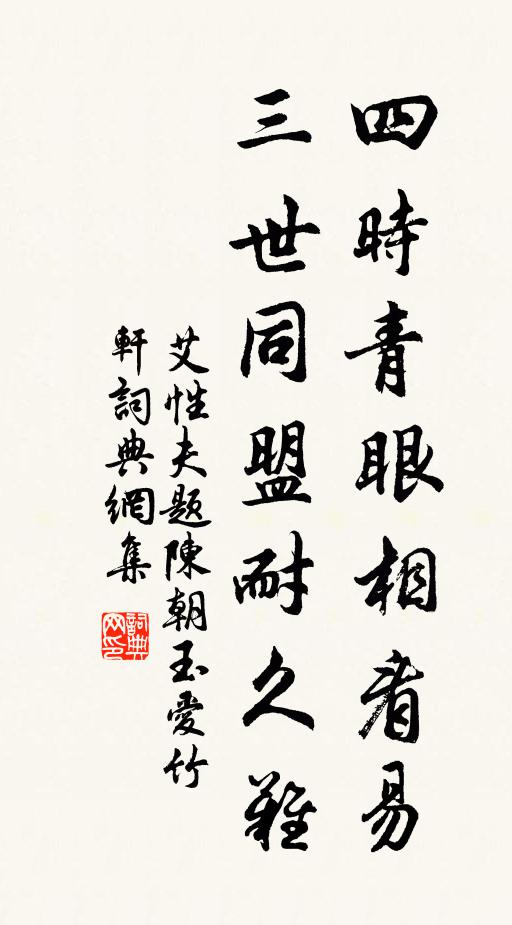 四時青眼相看易
三世同盟耐久難
艾性夫題陳朝玉愛竹
軒詞典網集
詞典网印